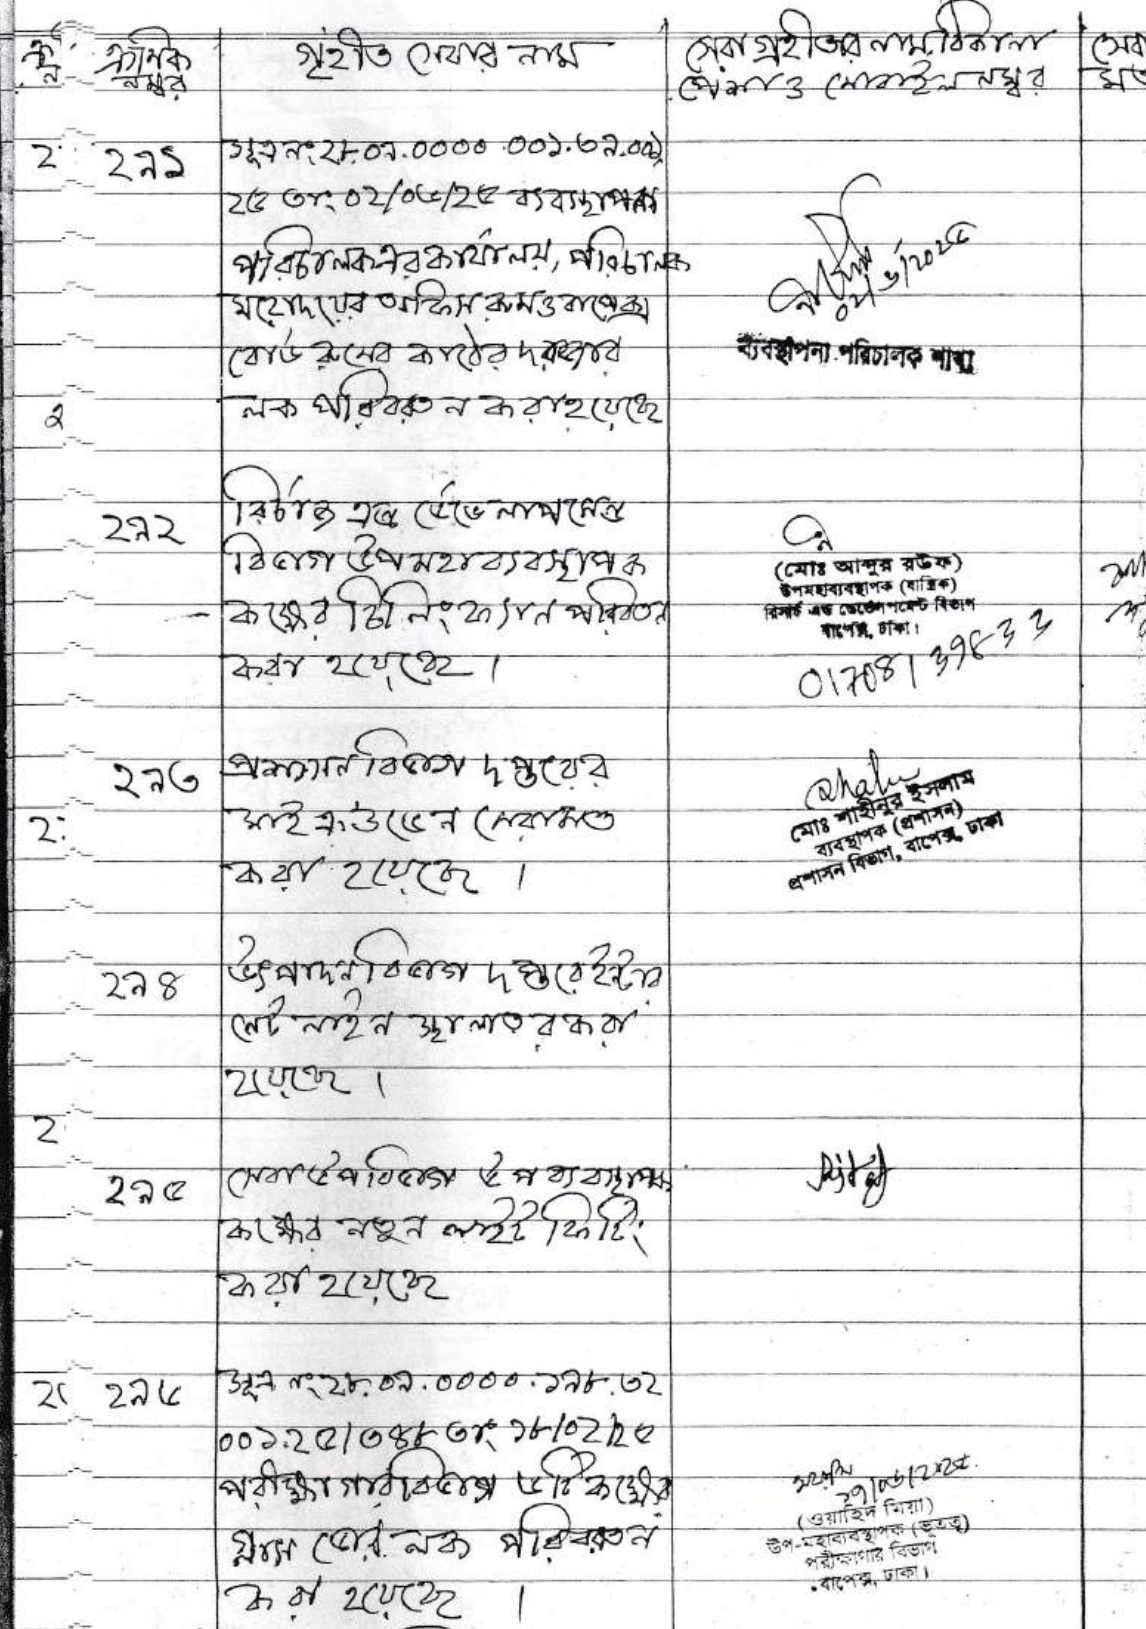 ক্রমিক নম্বর
গৃহীত সেবার নাম
সেবা গ্রহীতার নাম, ঠিকানা
পেশা ও মোবাইল নম্বর
২৯১
সূত্র নং ২৮.০৯.০০০০.০০১.৩৯.০০১
২৫ তাং ০২/০৬/২৫ ব্যবস্থাপনা
পরিচালক এর কার্যালয়, পরিচালক
মহোদয়ের অফিস রুম ও বাপেক্স
বোর্ড রুমের কাঠের দরজার
লক পরিবরতন করা হয়েছে
ব্যবস্থাপনা পরিচালক শাখা
২৯২
রিচার্স এন্ড ডেভেলাপমেন্ট
বিভাগ উপমহাব্যবস্থাপক
কক্ষের চিলিং ফ্যান পরিবতন
করা হয়েছে।
(মোঃ আব্দুর রউফ)
উপমহাব্যবস্থাপক (যান্ত্রিক)
রিসার্চ এন্ড ডেভেলপমেন্ট বিভাগ
বাপেক্স, ঢাকা।
01708139833
২৯৩
প্রশাসন বিভাগ দপ্তরের
মাইক্রওভেন মেরামত
করা হয়েছে।
মোঃ শাহীনুর ইসলাম
ব্যবস্থাপক (প্রশাসন)
প্রশাসন বিভাগ, বাপেক্স, ঢাকা
২৯৪
উৎপাদন বিভাগ দপ্তরে ইন্টার
নেট লাইন স্থানান্তর করা
হয়েছে।
২৯৫
সেবা উপবিভাগ উপব্যবস্থাপক
কক্ষের নতুন লাইট ফিটিং
করা হয়েছে
২৯৬
সূত্র নং ২৮.০৯.০০০০.১৯৮.৩২
০০১.২৫/৩৪৮ তাং ১৮/০২/২৫
পরীক্ষাগার বিভাগ ৬টি কক্ষের
গ্লাস ডোর লক পরিবরতন
করা হয়েছে।
২৭/০৬/২০২৫
(ওয়াহিদ মিয়া)
উপ-মহাব্যবস্থাপক (ভূতত্ত্ব)
পরীক্ষাগার বিভাগ
বাপেক্স, ঢাকা।